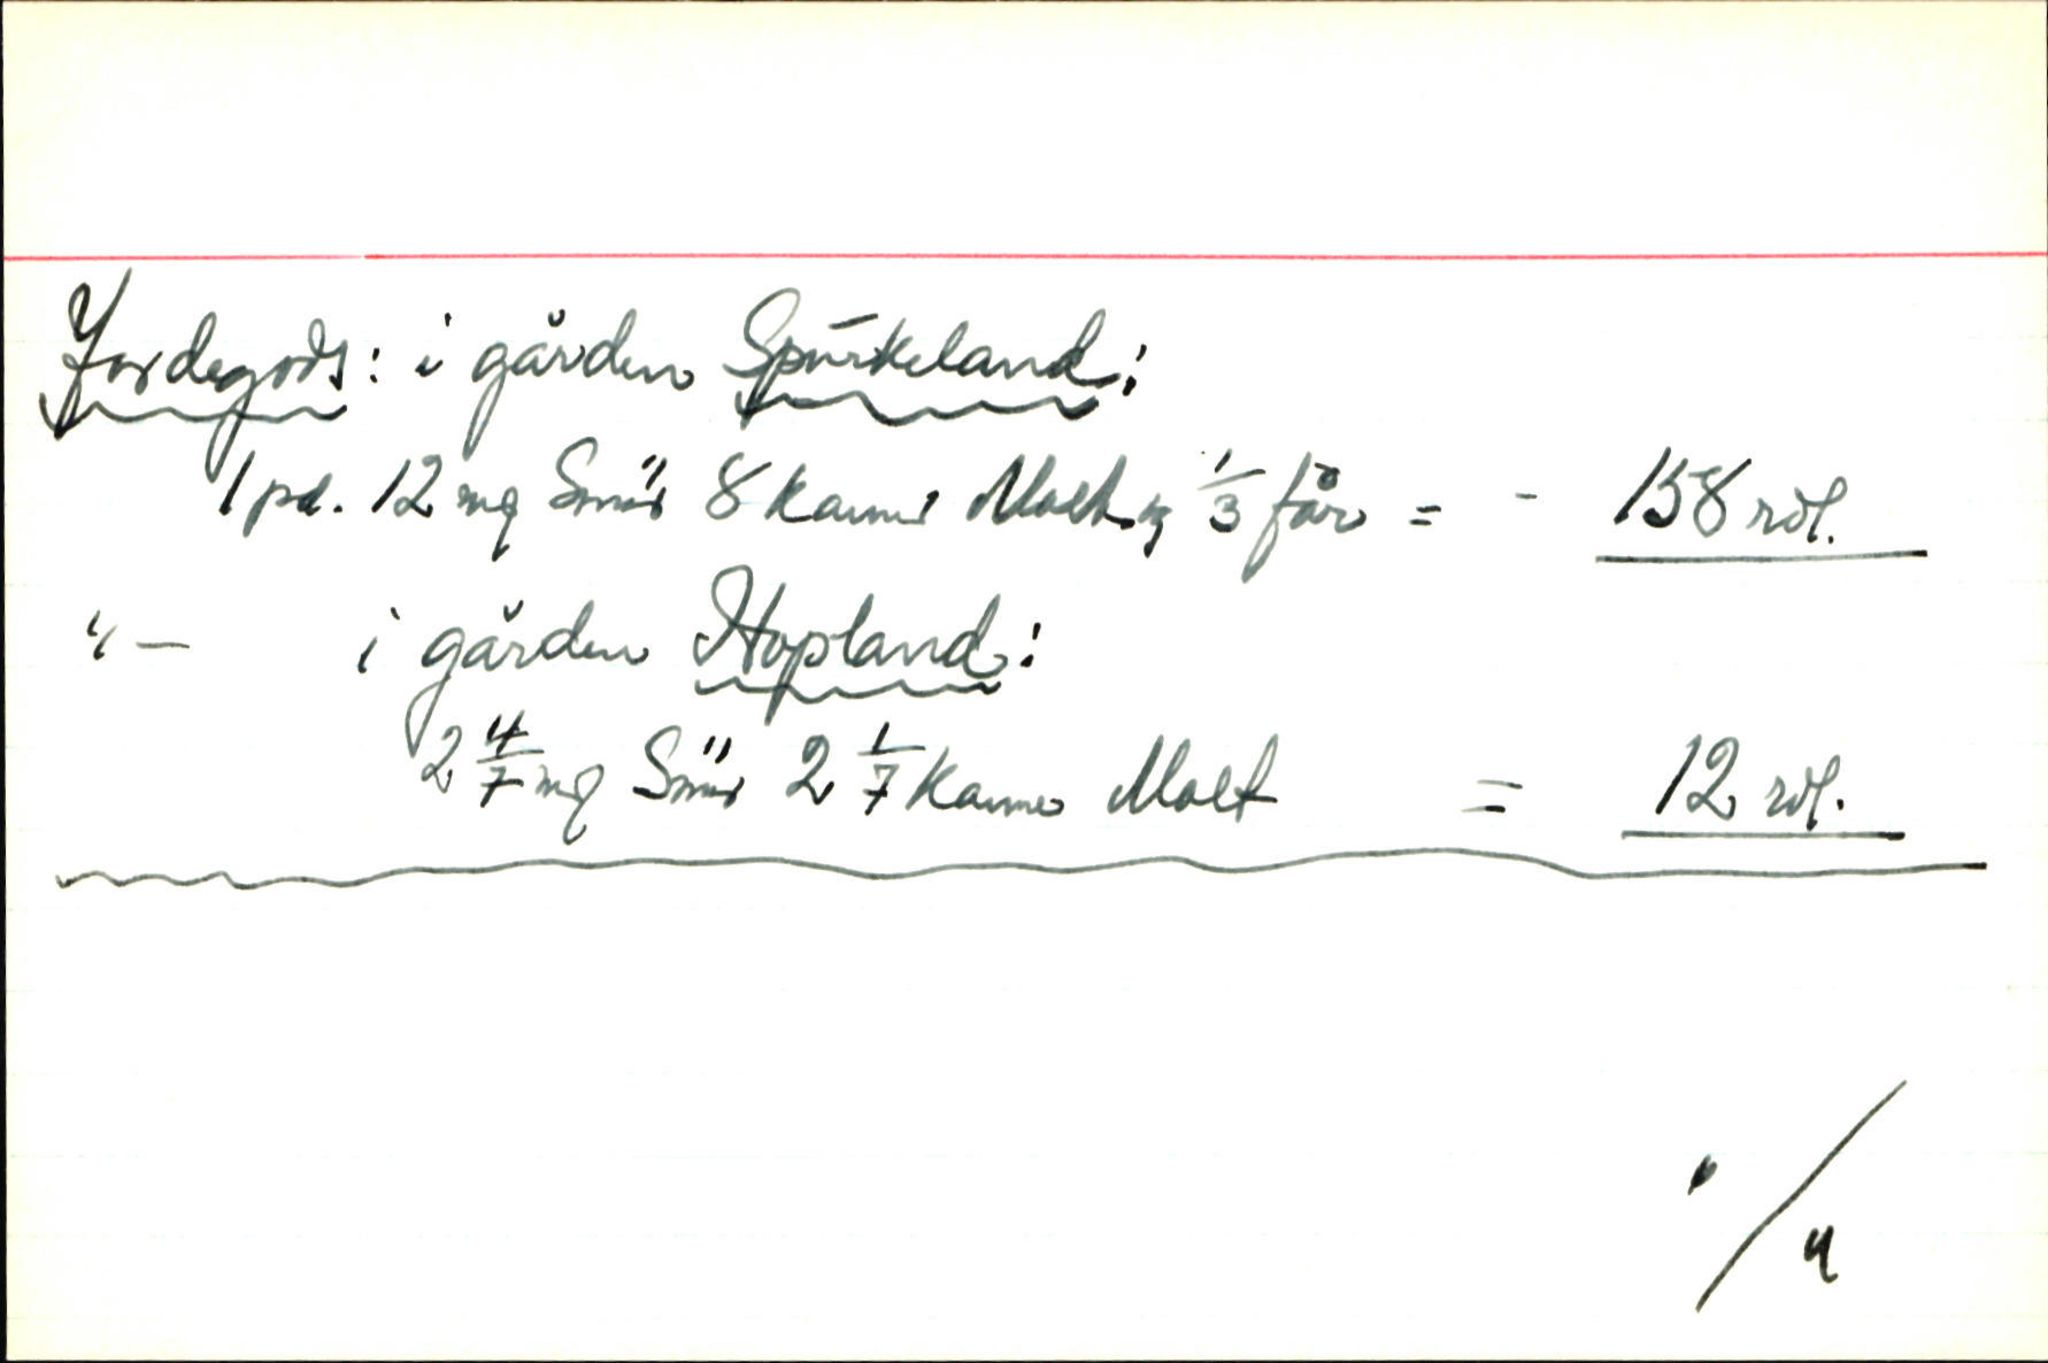 Jordegods: i gården Spurkeland:
1 pd. 12 mq Smör 8 Kanner Malt og 1/3 får = - 158 rdl.
"— i gården Hopland:
2 4/7 mq Smör 2 1/7 Kanner Malt = 12 rdl.